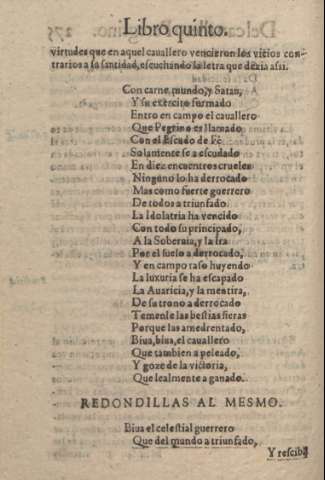 Libro quinto.
virtudes que en aquel cavallero vencieron los vicios con-
trarios a su santidad, escuchando la letra que dezia assi.
Con carne, mundo, y Satan,
Y su exercito formado
Entro en campo el cavallero
Que Pegrino es llamado
Con el Escudo de Fê
Solamente se a escudado
En diez encuentros crueles
Ninguno lo ha derrocado
Mas como fuerte guerrero
De todos a triunfado.
La Idolatria ha vencido
Con todo su principado,
A la Soberuia, y la Ira
Por el suelo a derrocado,
Y en campo raso huyendo
La luxuria se ha escapado
La Auaricia, y la mentira,
De su trono a derrocado
Temenle las bestias fieras
Porque las amedrentado,
Biua, biua, el cauallero
Que tambien a peleado,
Y goze de la victoria,
Que lealmente a ganado.
REDONDILLAS AL MESMO.
Biua el celestial guerrero
Que del mundo a triunfado,
Y resciba